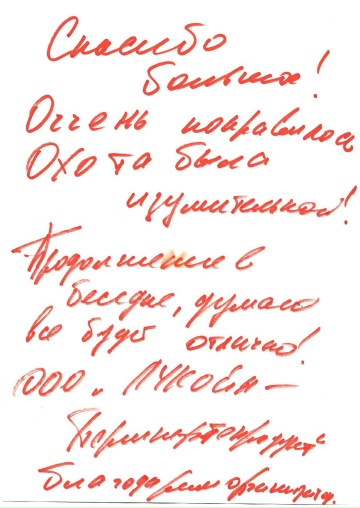 Спасибо
большое!
Очень понравилось
Охота была
изумительной!
Продолжение в
беседке, думаю
все будет отлично!
ООО „ЛУКойл-
Пермнефтепродукт“
Благодарим организатор.